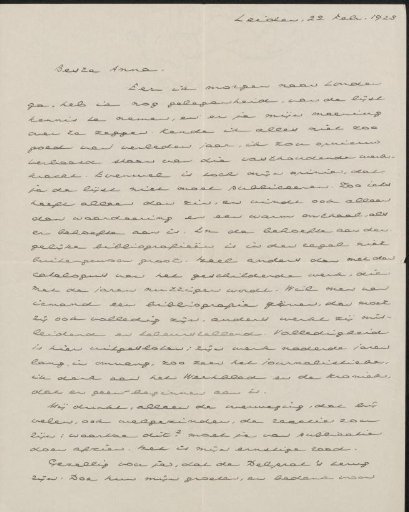 Leiden, 22 Febr. 1923
Beste Anna.
Eer ik morgen naar Londen
ga, heb ik nog gelegenheid, van de lijst
kennis te nemen, en er je mijn meening
over te zeggen. Kende ik alles niet zoo
goed van verleden jaar, ik zou opnieuw
verbaasd staan van die vasthoudende werk-
kracht. Evenwel is toch mijn opinie, dat
je de lijst niet moet publiceeren. Zoo iets
heeft alleen dan zin, en vindt ook alleen
dan waardeering en een warm onthaal, als
er behoefte aan is. En de behoefte aan der-
gelijke bibliografieën is in den regel niet
buitengewoon groot. Heel anders dan met den
catalogus van het geschilderde werk, die
met de jaren nuttiger wordt. Wil men van
iemand een bibliografie geven, dan moet
zij ook volledig zijn, anders werkt zij mis-
leidend en teleurstellend. Volledigheid
is hier uitgesloten: zijn werk
lang, in omvang, zoo zeer het journalistieke,
ik denk aan het Weekblad en de Kroniek,
dat er geen beginnen aan is.
Mij dunkt, alleen de overweging, dat bij
velen, ook welgezinden, de reactie zou
zijn: waartoe dit? moet je van publicatie
doen afzien. Het is mijn ernstige raad.
Gezellig voor je, dat de terug
zijn. Doe hun mijn groeten, en bedank voor